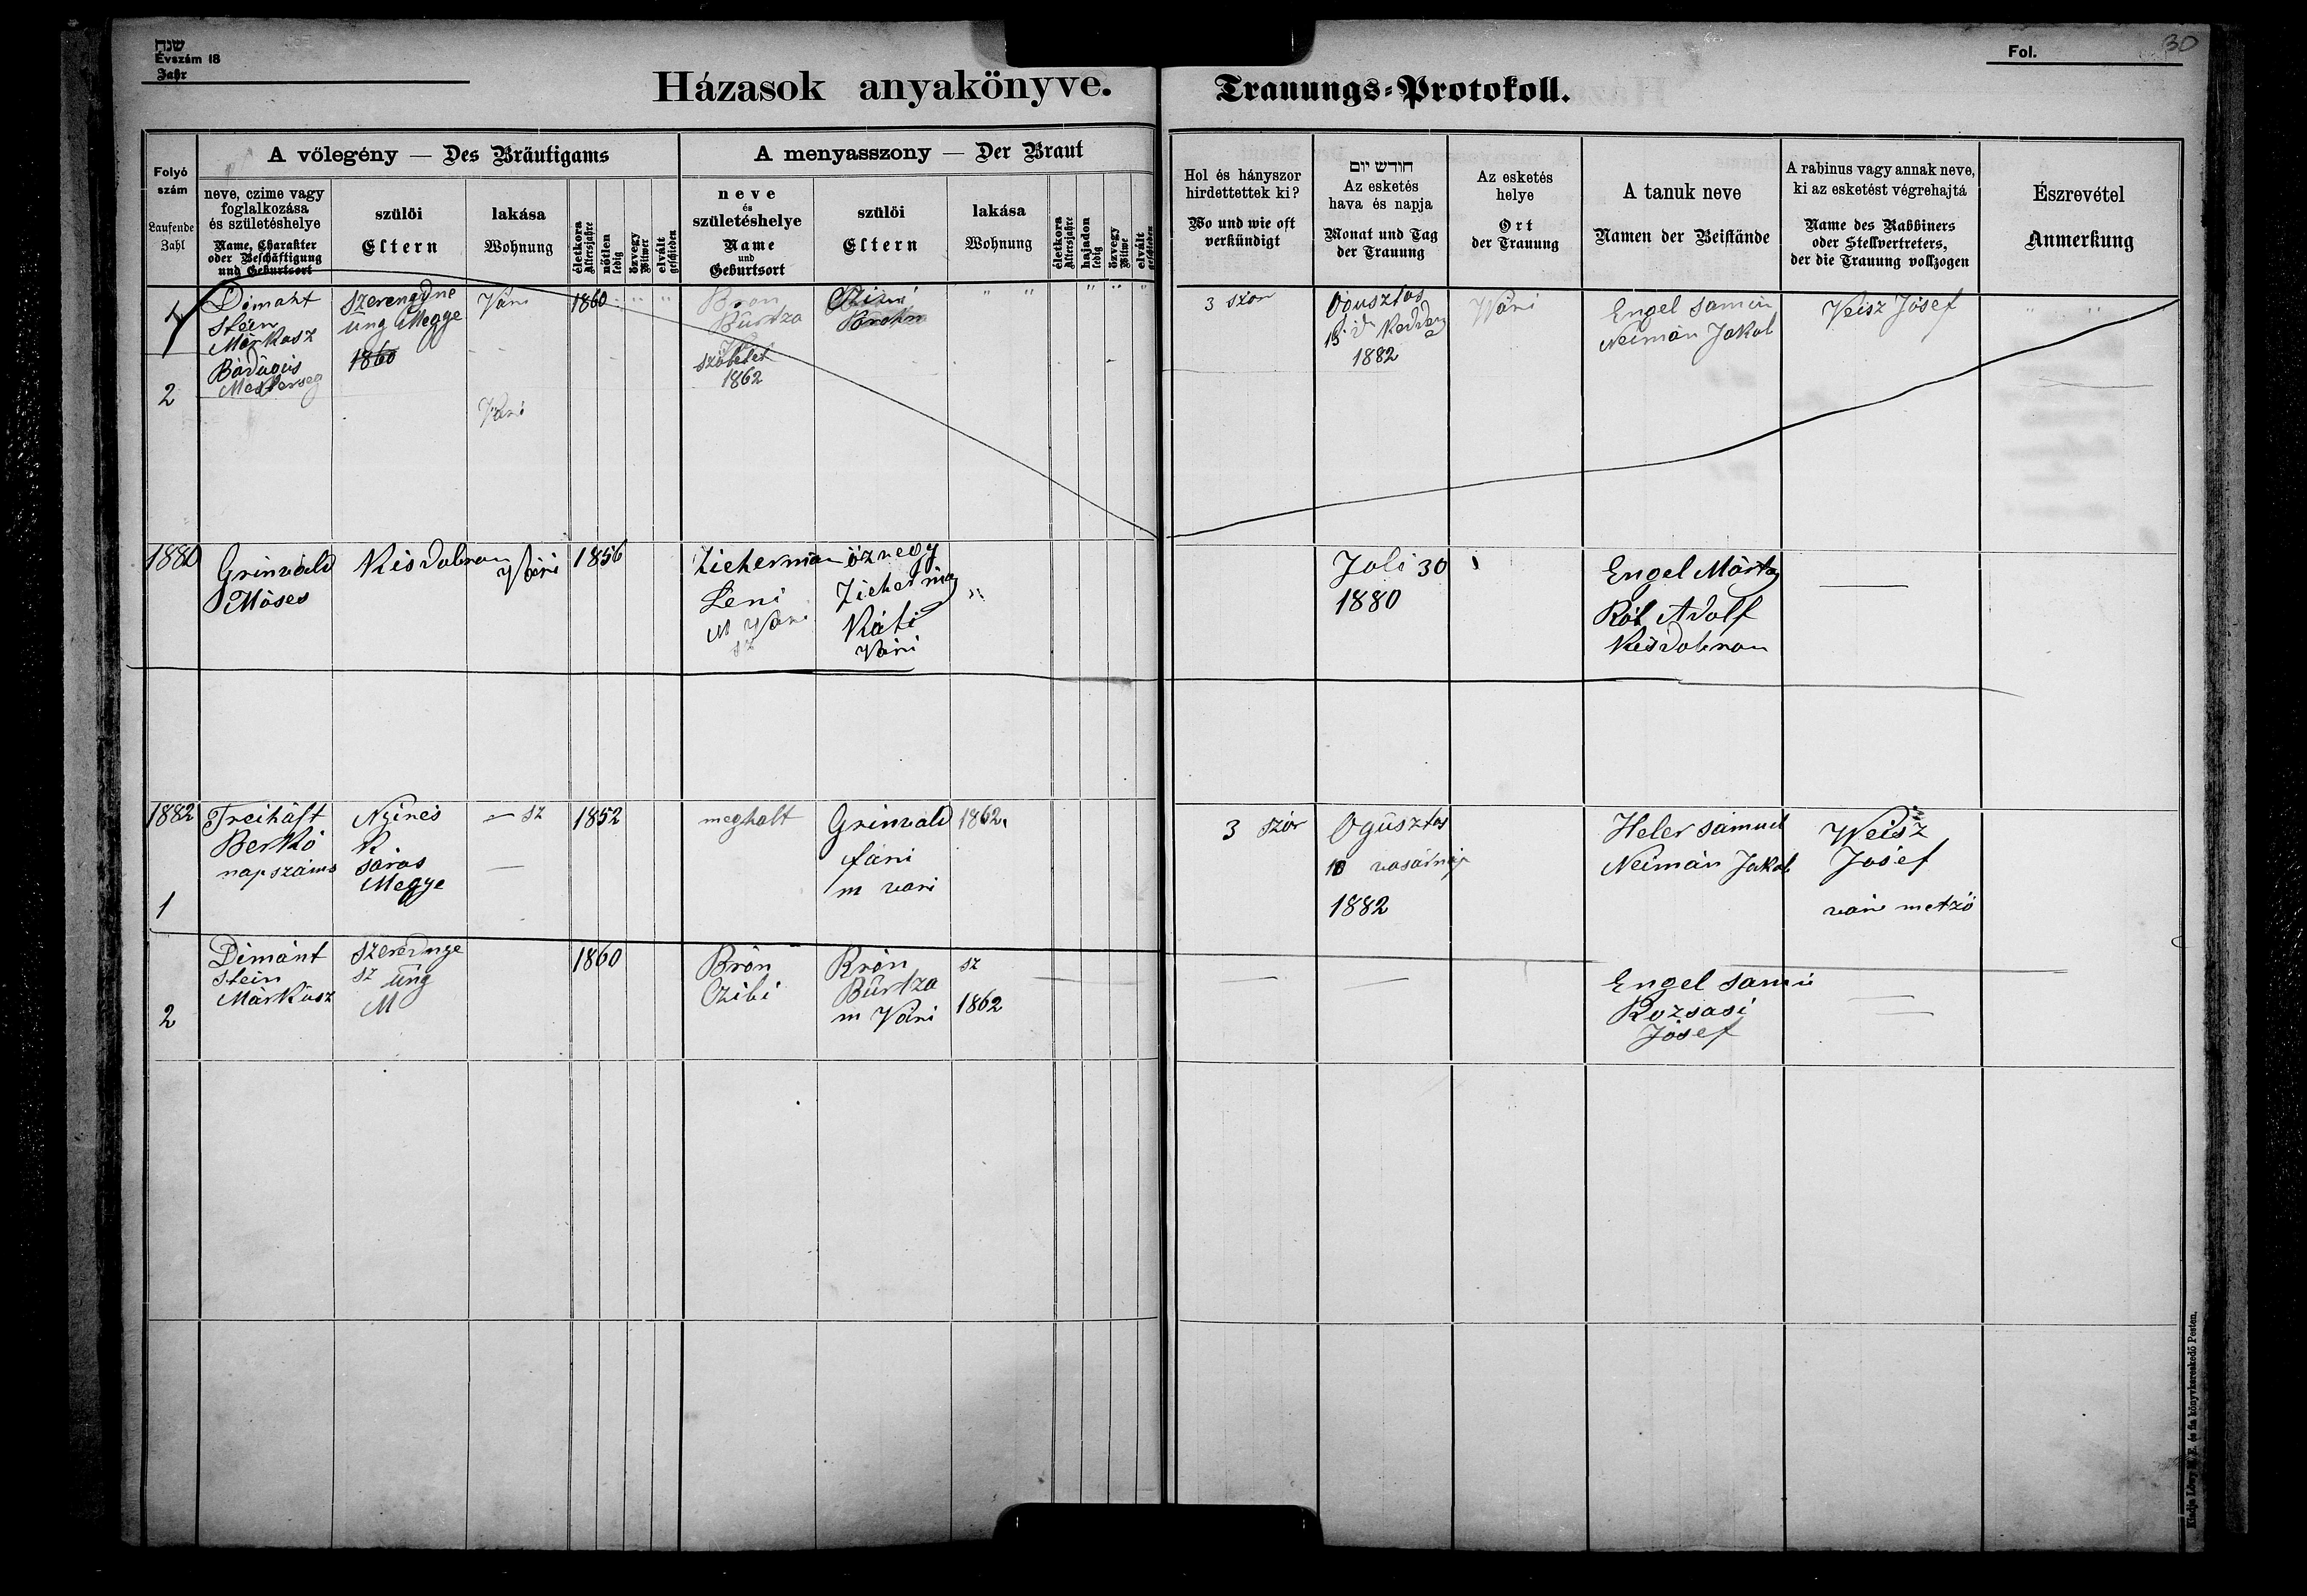 שנח
Évszám 18
Jahr
Fol.
30
Házasok anyakönyve.
Trauungs-Protokoll.
Folyó
szám
Laufende
Zahl
A vőlegény — Des Bräutigams
neve, czime vagy
foglalkozása
és születéshelye
Name, Charakter
oder Beschäftigung
und Geburtsort
szülői
Eltern
lakása
Wohnung
életkora
Altersjahre
nőtlen
ledig
özvegy
Witwer
elvált
geschieden
A menyasszony — Der Braut
neve
és
születéshelye
Name
und
Geburtsort
szülői
Eltern
lakása
Wohnung
életkora
Altersjahre
hajadon
ledig
özvegy
Witwe
elvált
geschieden
Hol és hányszor
hirdettettek ki?
Wo und wie oft
verkündigt
חודש יום
Az esketés
hava és napja
Monat und Tag
der Trauung
Az esketés
helye
Ort
der Trauung
A tanuk neve
Namen der Beistände
A rabinus vagy annak neve,
ki az esketést végrehajtá
Name des Rabbiners
oder Stellvertreters,
der die Trauung vollzogen
Észrevétel
Anmerkung
2
Dimant
stein
Márkusz
Bádogos
Mesterseg
Szerengdne
ung Megge
1860
Vári
Vári
1860
Bron
Burtza
született
1862
3 szor
Ogusztos
15
1882
Wári
Engel samu
Neimán Jakob
Veisz Jósef
1880
Grinvald
Móses
Kisdobron
Vári
1856
Zieherman
Leni
M Vári
sz
özvegy
Zieherman
Káti
Vári
"
Juli 30
1880
Engel Márton
Rót Adolf
Kisdobron
—
1882
1
Treiháft
Berkó
napszámos
Nyires
R
sáros
Megye
— sz
—
1852
meghalt
Grinvald
fáni
m vari
1862
3 szór
Ogüsztos
10 vasárnap
1882
Heler sámuel
Neimán Jakob
Weisz
Josef
vári metző
2
Dimánt
stein
Márkusz
Szerednye
sz ung
M
1860
Brón
Czibi
Brón
Burtza
m Vári
sz
1862
—
—
Engel samu
Rozsasi
Jósef
Kiadja Lőwy M. E. és fia könyvkereskedő Pesten.